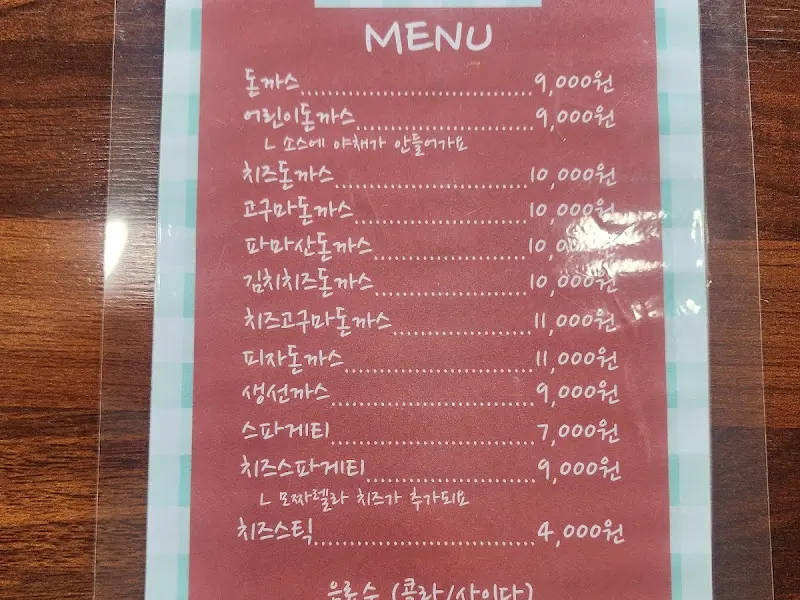 MENU
돈까스 9,000원
어린이돈까스 9,000원
ㄴ 소스에 야채가 안들어가요
치즈돈까스 10,000원
고구마돈까스 10,000원
파마산돈까스 10,000원
김치치즈돈까스 10,000원
치즈고구마돈까스 11,000원
피자돈까스 11,000원
생선까스 9,000원
스파게티 7,000원
치즈스파게티 9,000원
ㄴ 모짜렐라 치즈가 추가되요
치즈스틱 4,000원
음료수 (콜라/사이다)